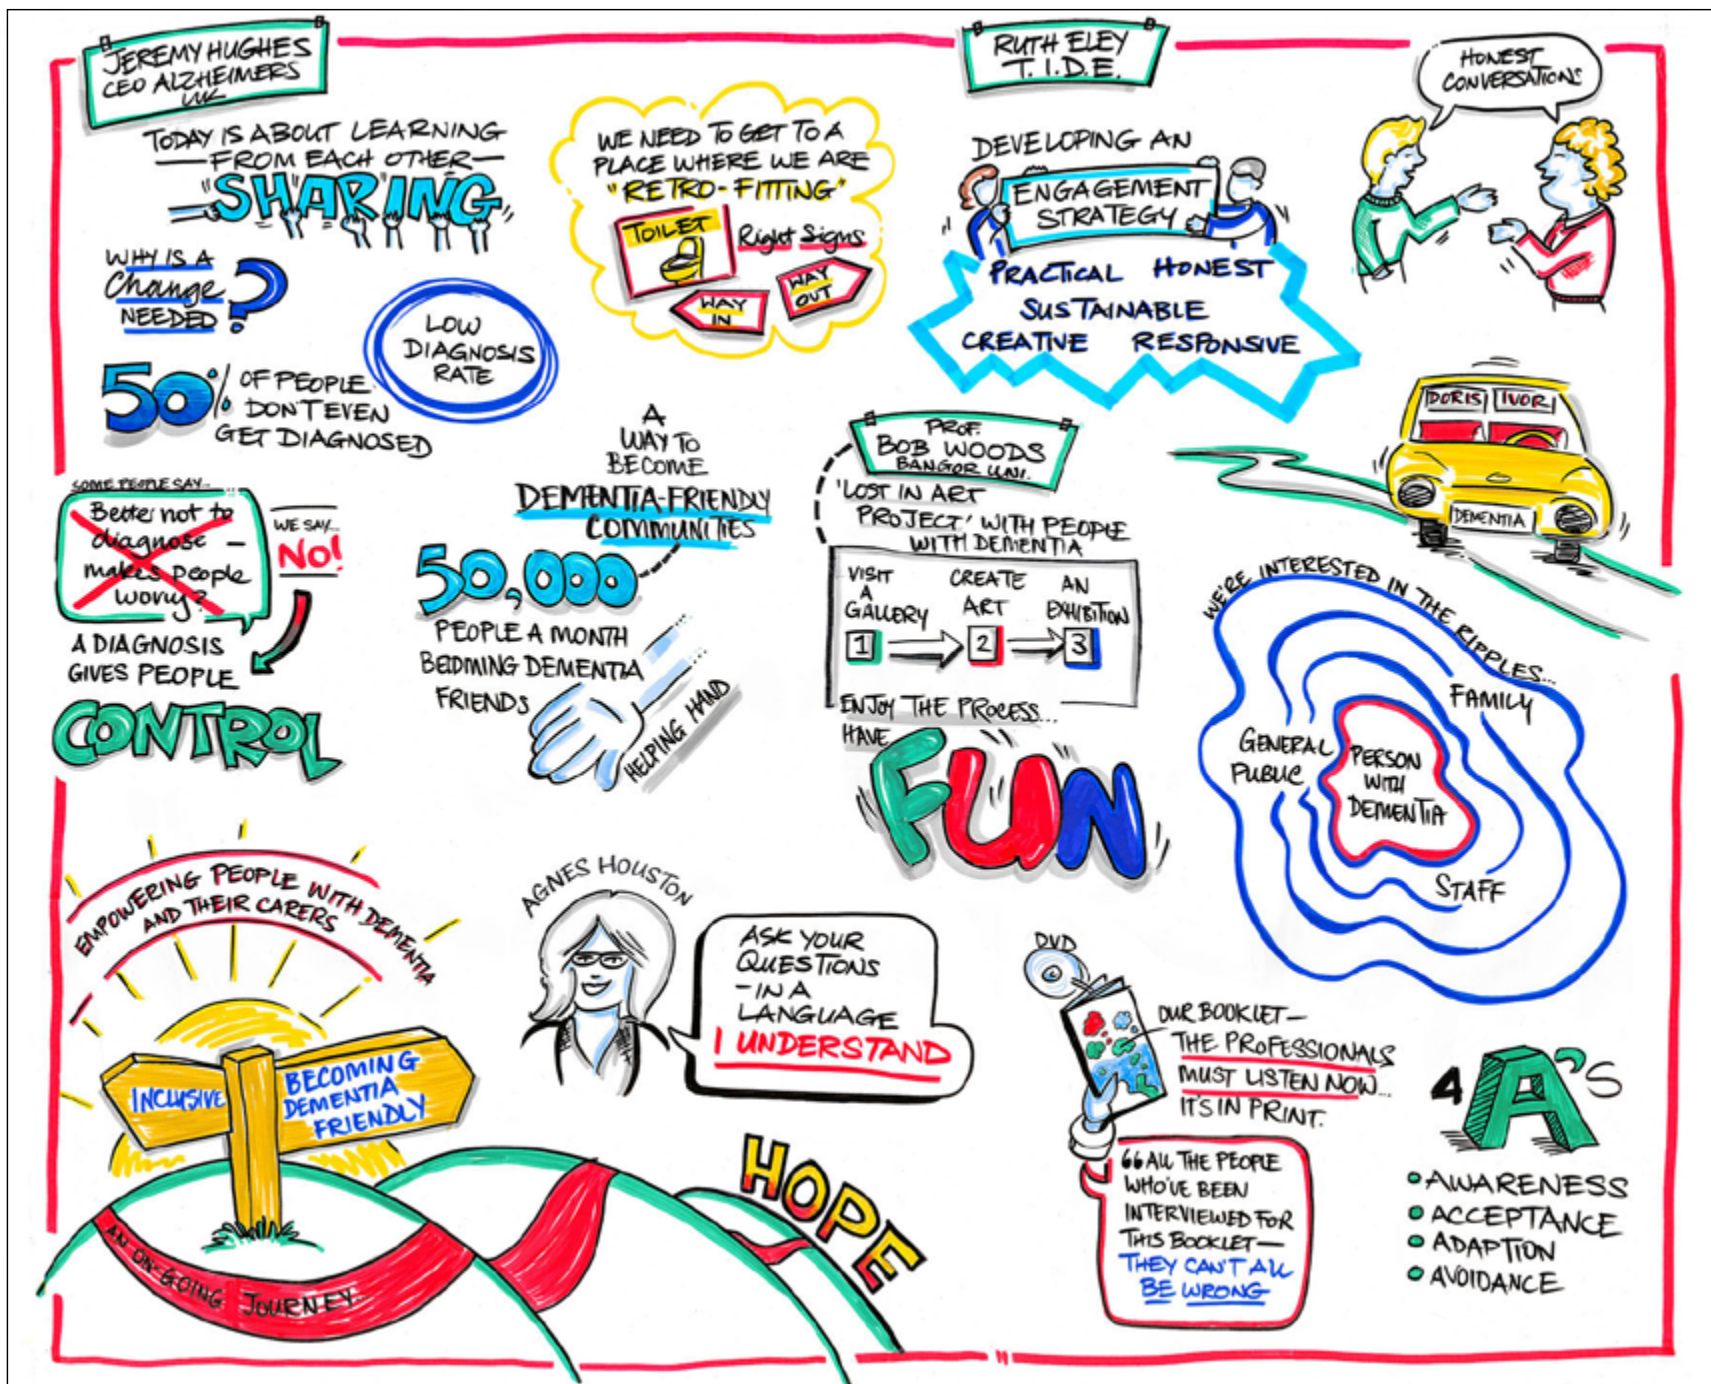 JEREMY HUGHES
CEO ALZHEIMERS
UK
TODAY IS ABOUT LEARNING
— FROM EACH OTHER —
"SHARING"
WHY IS A
Change
NEEDED?
LOW
DIAGNOSIS
RATE
50% OF PEOPLE
DON'T EVEN
GET DIAGNOSED
SOME PEOPLE SAY...
Better not to
diagnose —
makes people
worry?
WE SAY...
NO!
A DIAGNOSIS
GIVES PEOPLE
CONTROL
WE NEED TO GET TO A
PLACE WHERE WE ARE
"RETRO-FITTING"
TOILET
Right Signs
WAY
IN
WAY
OUT
A
WAY TO
BECOME
DEMENTIA-FRIENDLY
COMMUNITIES
50,000
PEOPLE A MONTH
BECOMING DEMENTIA
FRIENDS
HELPING HAND
RUTH ELEY
T.I.D.E.
DEVELOPING AN
ENGAGEMENT
STRATEGY
PRACTICAL HONEST
SUSTAINABLE
CREATIVE RESPONSIVE
HONEST
CONVERSATIONS
DORIS IVOR
DEMENTIA
PROF.
BOB WOODS
BANGOR UNI.
'LOST IN ART
PROJECT' WITH PEOPLE
WITH DEMENTIA
VISIT
A
GALLERY
1
CREATE
ART
2
AN
EXHIBITION
3
ENJOY THE PROCESS...
HAVE
FUN
WE'RE INTERESTED IN THE RIPPLES...
FAMILY
GENERAL
PUBLIC
PERSON
WITH
DEMENTIA
STAFF
EMPOWERING PEOPLE WITH DEMENTIA
AND THEIR CARERS
INCLUSIVE
BECOMING
DEMENTIA
FRIENDLY
AN ON-GOING JOURNEY...
HOPE
AGNES HOUSTON
ASK YOUR
QUESTIONS
– IN A
LANGUAGE
I UNDERSTAND
DVD
OUR BOOKLET —
THE PROFESSIONALS
MUST LISTEN NOW...
IT'S IN PRINT.
“ALL THE PEOPLE
WHO'VE BEEN
INTERVIEWED FOR
THIS BOOKLET —
THEY CAN'T ALL
BE WRONG
4 A'S
• AWARENESS
• ACCEPTANCE
• ADAPTION
• AVOIDANCE